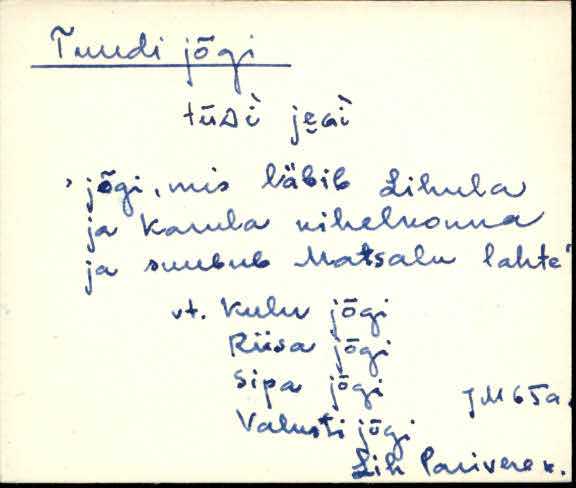 Tuudi jõgi
tūᴅi̬ je̮ɢi̬
'jõgi, mis läbib Lihula
ja Karula kihelkonna
ja suubub Matsalu lahte'
vt. Kulu jõgi
Riisa jõgi
Sipa jõgi
Valusti jõgi
JM 65 a.
Lih Parivere k.